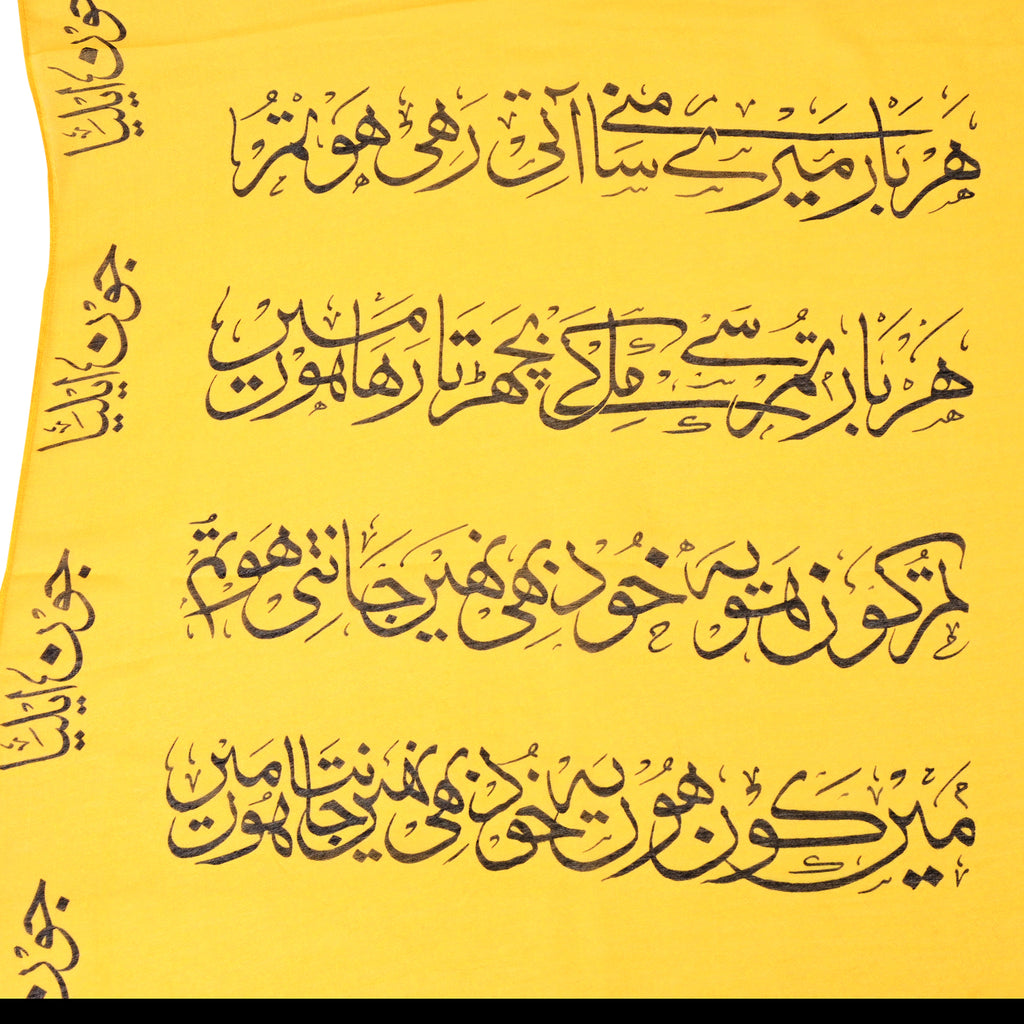 ہر بار میرے سامنے آتی رہی ہو تم
ہر بار تم سے مل کے بچھڑتا رہا ہوں میں
تم کون ہو یہ خود بھی نہیں جانتی ہو تم
میں کون ہوں یہ خود بھی نہیں جانتا ہوں میں
جون ایلیا
جون ایلیا
جون ایلیا
جون